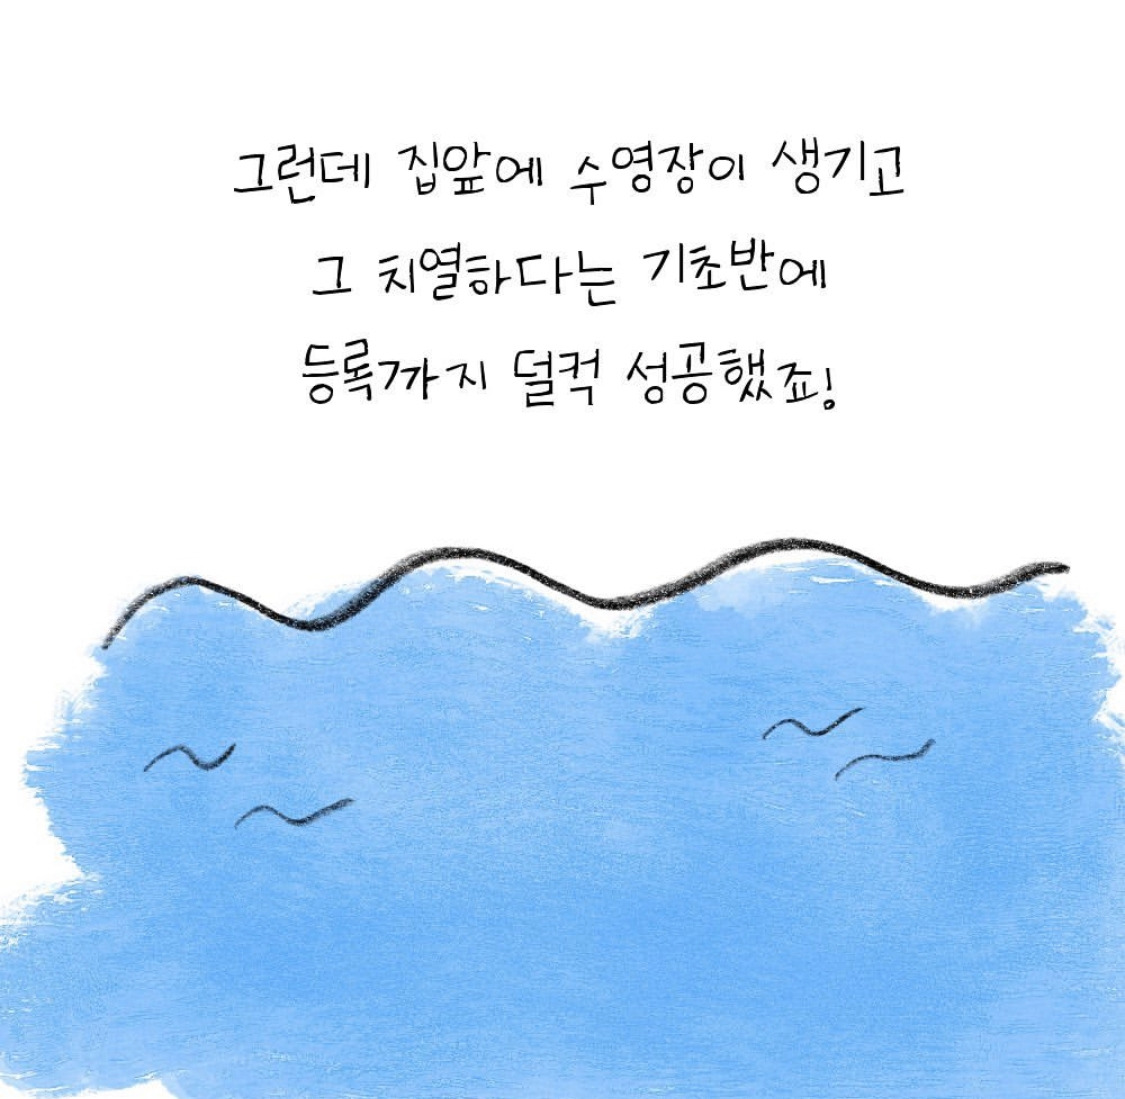 그런데 집앞에 수영장이 생기고
그 치열하다는 기초반에
등록까지 덜컥 성공했죠!